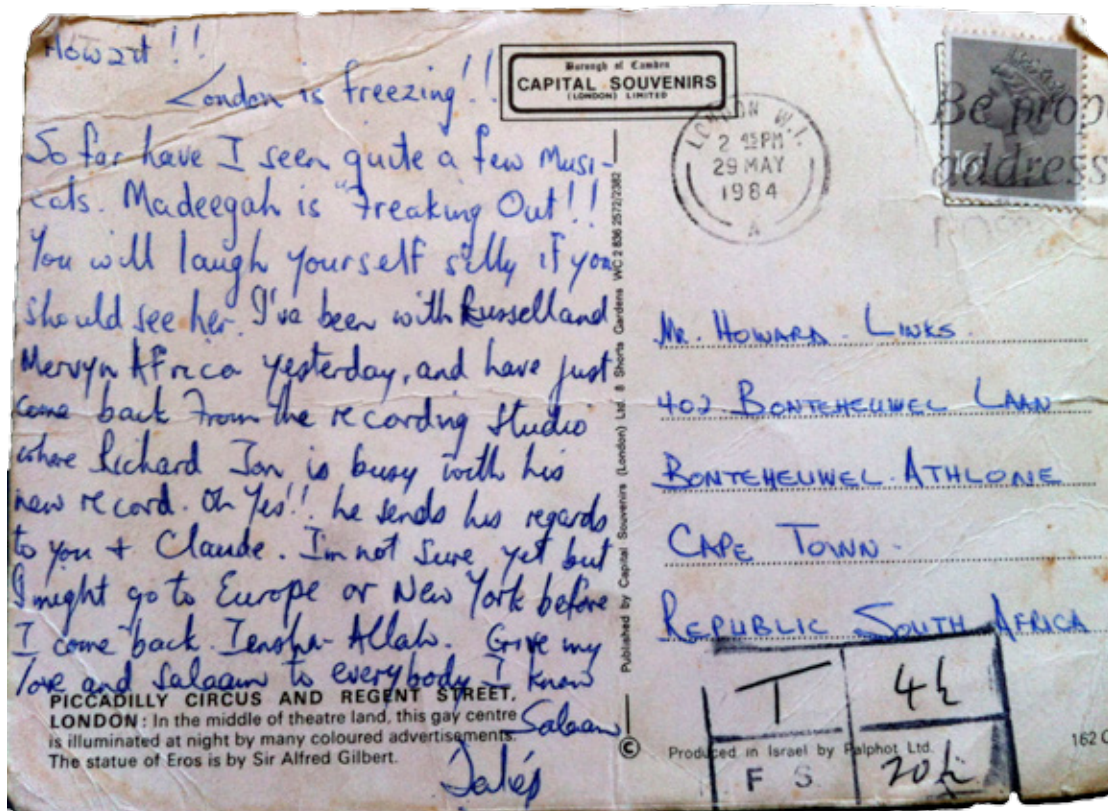 Howard!!
London is freezing!!
So far have I seen quite a few Musi-
cals. Madeegah is "Freaking Out!!
You will laugh yourself silly if you
should see her. I've been with Russell and
Mervyn Africa yesterday, and have just
come back from the recording studio
where Richard Jon is busy with his
new record. Oh Yes!! he sends his regards
to you + Claude. I'm not sure yet but
I might go to Europe or New York before
I come back. Iensha-Allah. Give my
love and Salaam to everybody I know
Salaam
PICCADILLY CIRCUS AND REGENT STREET,
LONDON: In the middle of theatre land, this gay centre
is illuminated at night by many coloured advertisements.
The statue of Eros is by Sir Alfred Gilbert.
Borough of Camden
CAPITAL SOUVENIRS
(LONDON) LIMITED
Published by Capital Souvenirs (London) Ltd. 8 Shorts Gardens WC 2 836 2572/2382
©
LONDON W.1.
2 45 PM
29 MAY
1984
A
Be prop
address
Mr. HOWARD. LINKS.
402 BONTEHEUWEL LAAN
BONTEHEUWEL. ATHLONE
CAPE TOWN.
REPUBLIC SOUTH AFRICA
T
F S
Produced in Israel by Palphot Ltd.
162